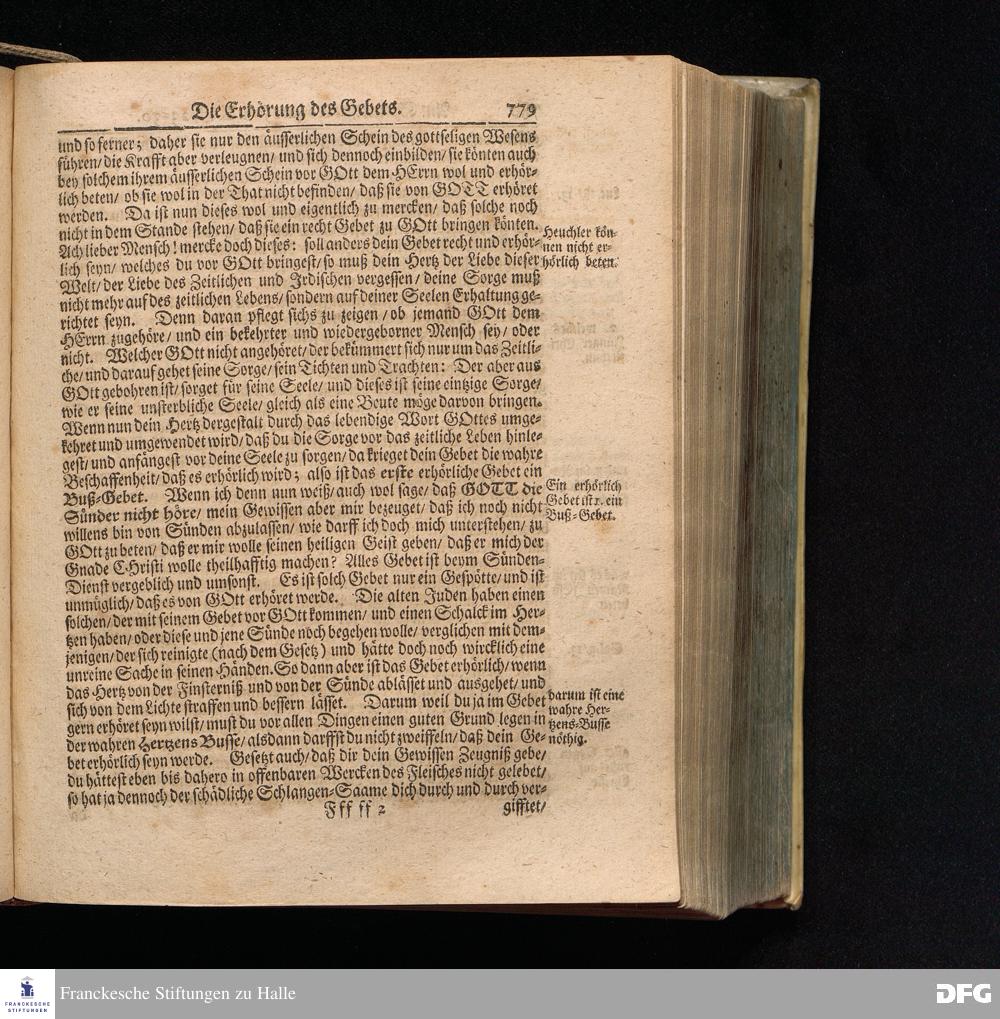 Die Erhörung des Gebets. 779
und so ferner; daher sie nur den äusserlichen Schein des gottseligen Wesens
führen/ die Krafft aber verleugnen/ und sich dennoch einbilden/ sie könten auch
bey solchem ihrem äusserlichen Schein vor GOtt dem HErrn wol und erhör-
lich beten/ ob sie wol in der That nicht befinden/ daß sie von GOTT erhöret
werden. Da ist nun dieses wol und eigentlich zu mercken/ daß solche noch
nicht in dem Stande stehen/ daß sie ein recht Gebet zu GOtt bringen könten.
Ach lieber Mensch! mercke doch dieses: soll anders dein Gebet recht und erhör-
lich seyn/ welches du vor GOtt bringest/ so muß dein Hertz der Liebe dieser
Welt/ der Liebe des Zeitlichen und Irdischen vergessen/ deine Sorge muß
nicht mehr auf des zeitlichen Lebens/ sondern auf deiner Seelen Erhaltung ge-
richtet seyn. Denn daran pflegt sichs zu zeigen/ ob jemand GOtt dem
HErrn zugehöre/ und ein bekehrter und wiedergeborner Mensch sey/ oder
nicht. Welcher GOtt nicht angehöret/ der bekümmert sich nur um das Zeitli-
che/ und darauf gehet seine Sorge/ sein Tichten und Trachten: Der aber aus
GOtt gebohren ist/ sorget für seine Seele/ und dieses ist seine eintzige Sorge/
wie er seine unsterbliche Seele/ gleich als eine Beute möge darvon bringen.
Wenn nun dein Hertz dergestalt durch das lebendige Wort GOttes umge-
kehret und umgewendet wird/ daß du die Sorge vor das zeitliche Leben hinle-
gest/ und anfängest vor deine Seele zu sorgen/ da krieget dein Gebet die wahre
Beschaffenheit/ daß es erhörlich wird; also ist das erste erhörliche Gebet ein
Buß-Gebet. Wenn ich denn nun weiß/ auch wol sage/ daß GOTT die
Sünder nicht höre/ mein Gewissen aber mir bezeuget/ daß ich noch nicht
willens bin von Sünden abzulassen/ wie darff ich doch mich unterstehen/ zu
GOtt zu beten/ daß er mir wolle seinen heiligen Geist geben/ daß er mich der
Gnade Christi wolle theilhafftig machen? Alles Gebet ist beym Sünden-
Dienst vergeblich und umsonst. Es ist solch Gebet nur ein Gespötte/ und ist
unmüglich/ daß es von GOtt erhöret werde. Die alten Juden haben einen
solchen/ der mit seinem Gebet vor GOtt kommen/ und einen Schalck im Her-
tzen haben/ oder diese und jene Sünde noch begehen wolle/ verglichen mit dem-
jenigen/ der sich reinigte (nach dem Gesetz) und hätte doch noch wircklich eine
unreine Sache in seinen Händen. So dann aber ist das Gebet erhörlich/ wenn
das Hertz von der Finsterniß und von der Sünde ablässet und ausgehet/ und
sich von dem Lichte straffen und bessern lässet. Darum weil du ja im Gebet
gern erhöret seyn wilst/ must du vor allen Dingen einen guten Grund legen in
der wahren Hertzens Busse/ alsdann darffst du nicht zweiffeln/ daß dein Ge-
bet erhörlich seyn werde. Gesetzt auch/ daß dir dein Gewissen Zeugniß gebe/
du hättest eben bis dahero in offenbaren Wercken des Fleisches nicht gelebet/
so hat ja dennoch der schädliche Schlangen-Saame dich durch und durch ver-
Fff ff 2 gifftet/
Heuchler kön-
nen nicht er-
hörlich beten.
Ein erhörlich
Gebet ist 1. ein
Buß-Gebet.
Darum ist eine
wahre Her-
tzens-Busse
nöthig.
FRANCKESCHE
STIFTUNGEN
Franckesche Stiftungen zu Halle
DFG